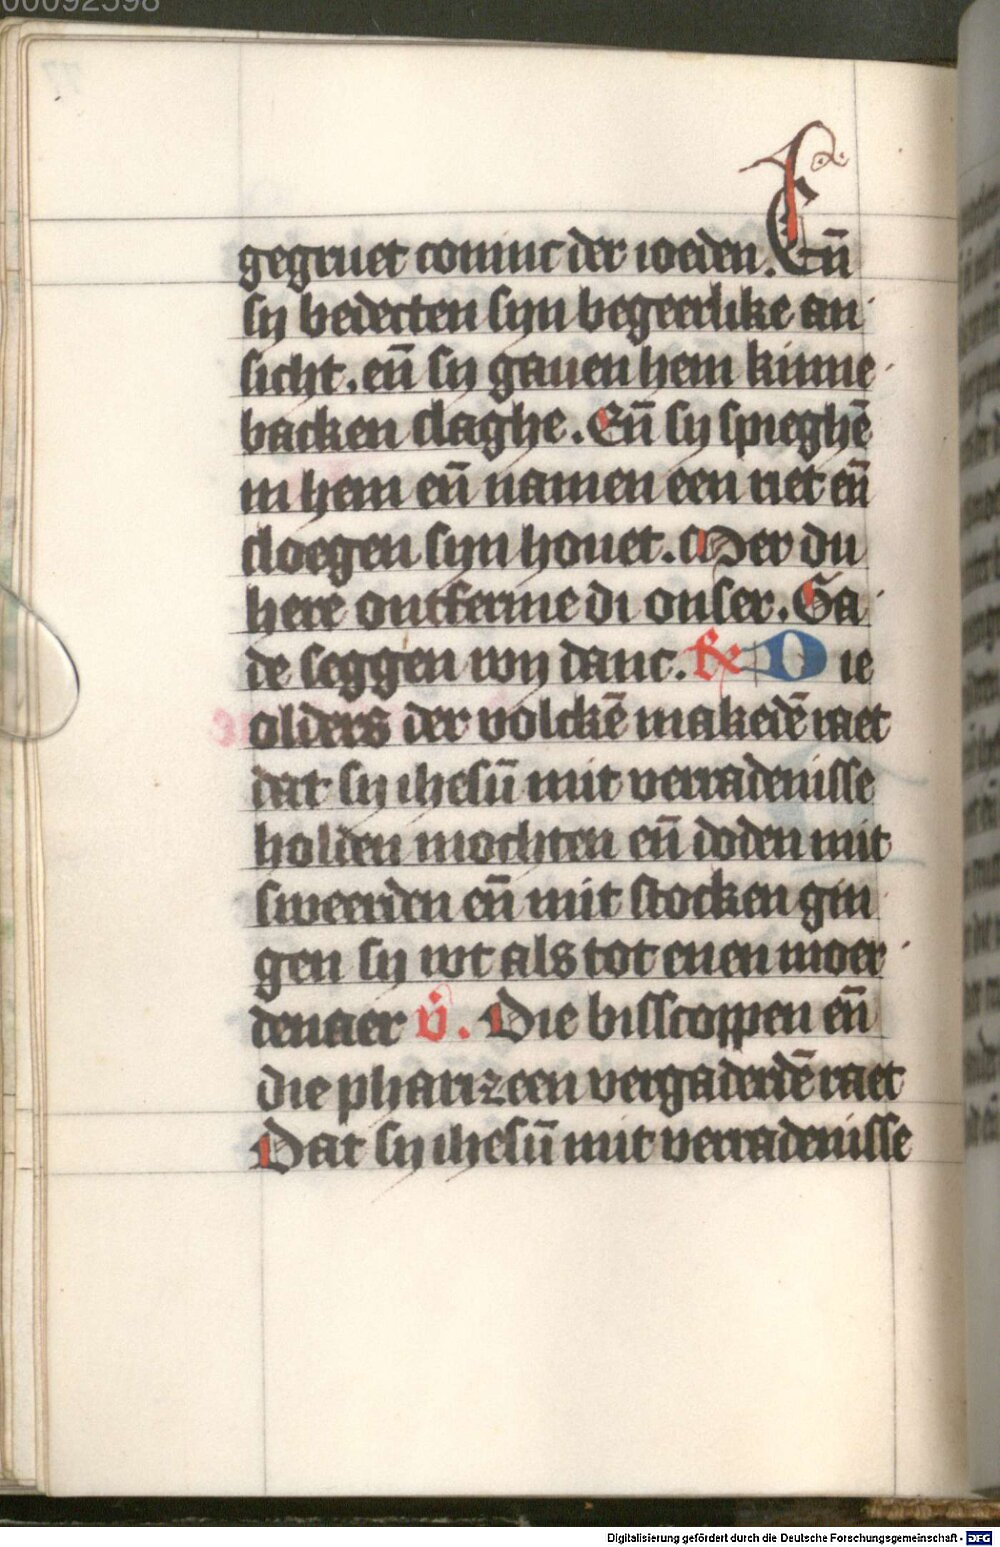 00092598
gegruet coninc der ioeden. Eñ
sy bedecten syn begeerlike an
sicht. eñ sy gauen hem kinne
backen slaghe. Eñ sy spieghē
in hem eñ namen een riet eñ
sloegen syn houet. Mer du
here ontferme di onser. Ga
de seggen wy danc. R Die
olders der volckē makedē raet
dat sy ihesū mit verradenisse
holden mochten eñ doden mit
sweerden eñ mit stocken gin
gen sy wt als tot enen moer
denaer v. Die bisscoppen eñ
die pharizeen vergaderdē raet
Dat sy ihesū mit verradenisse
Digitalisierung gefördert durch die Deutsche Forschungsgemeinschaft - DFG